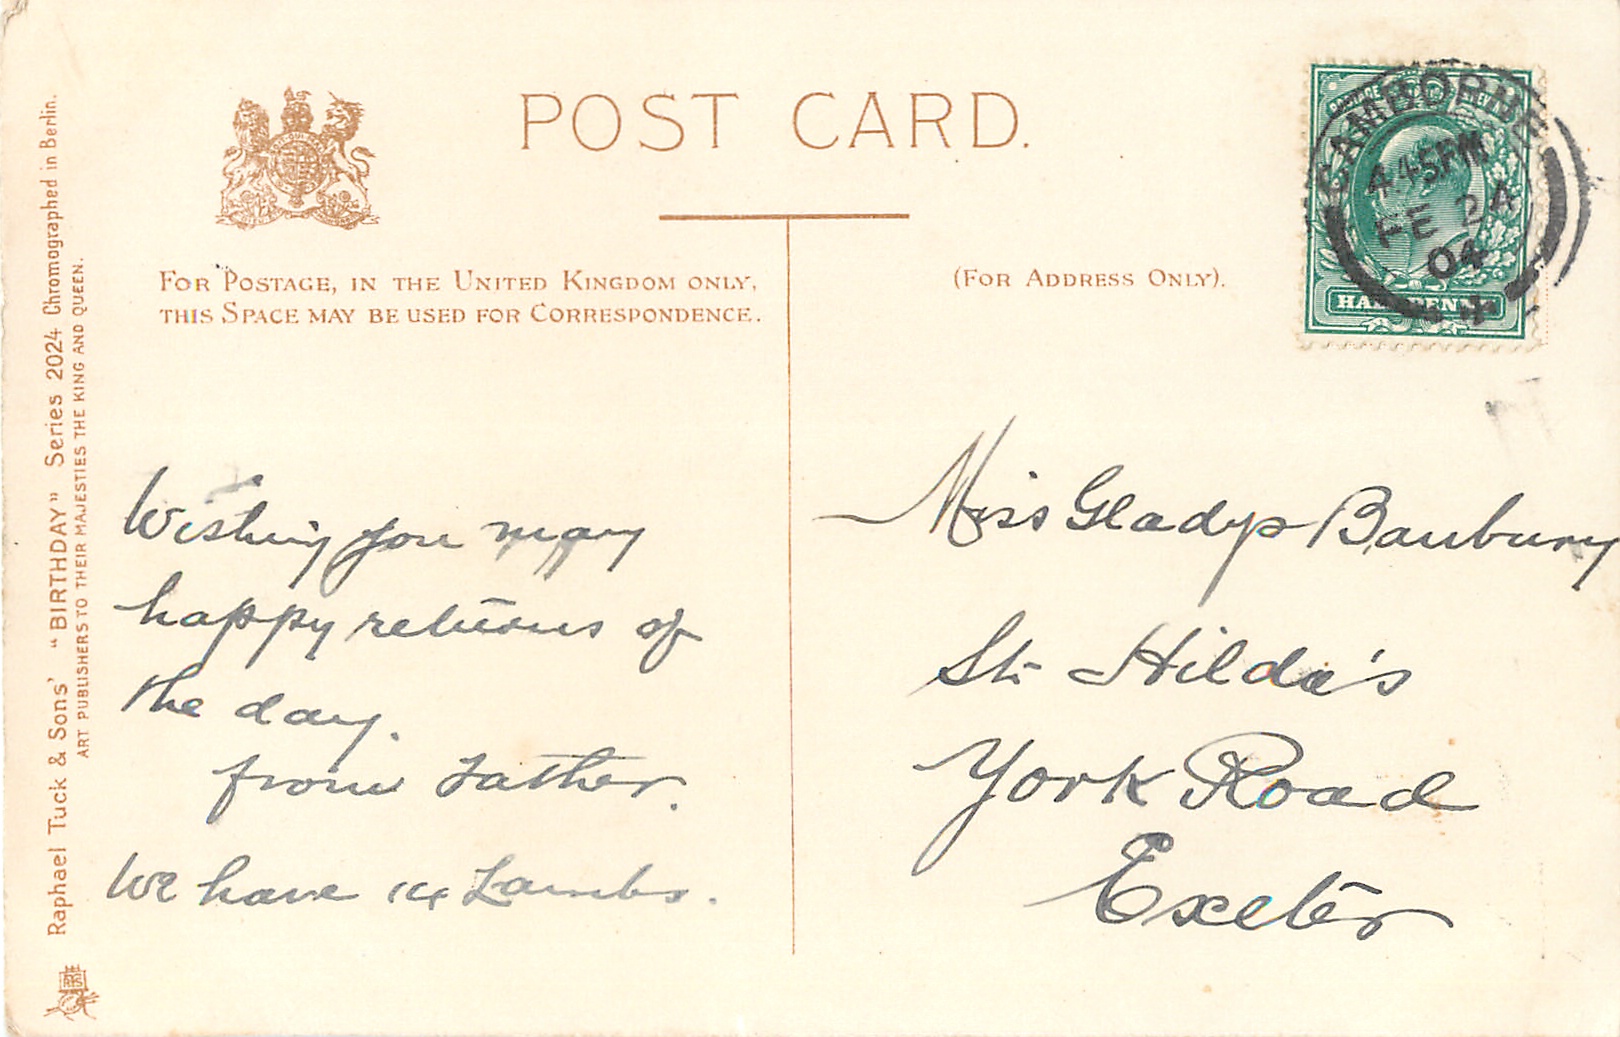 POST CARD.
FOR POSTAGE, IN THE UNITED KINGDOM ONLY,
THIS SPACE MAY BE USED FOR CORRESPONDENCE.
(FOR ADDRESS ONLY).
CAMBORNE
4 45PM
FE 24
04
HALFPENNY
Wishing you many
happy returns of
the day.
from Father.
We have 14 Lambs.
Miss Gladys Banbury
St. Hilda's
York Road
Exeter
Raphael Tuck & Sons' "BIRTHDAY" Series 2024 Chromographed in Berlin.
ART PUBLISHERS TO THEIR MAJESTIES THE KING AND QUEEN.